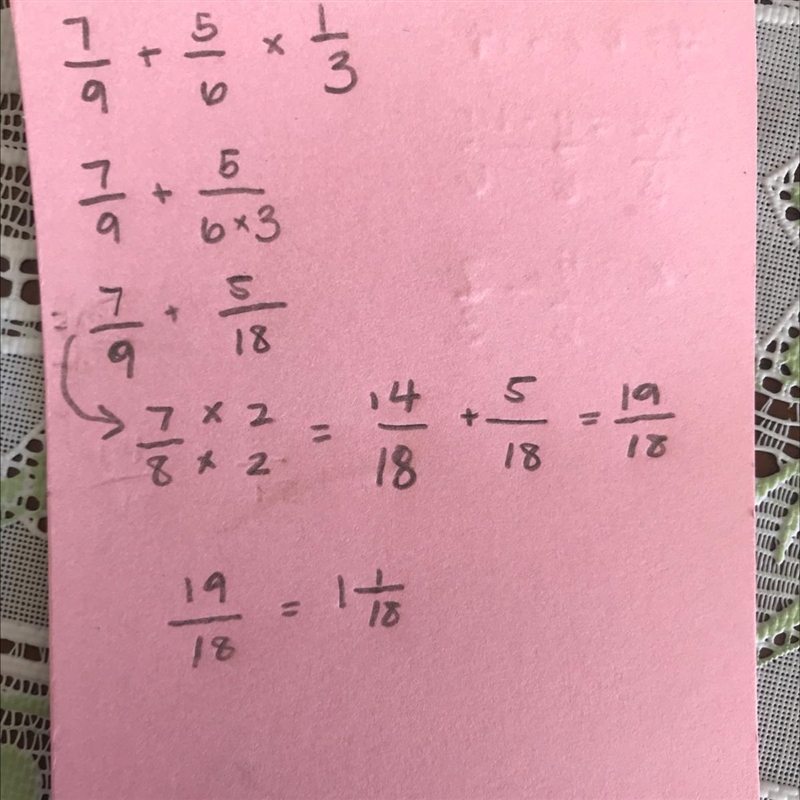 7/9 + 5/6 × 1/3
7/9 + 5/(6×3)
= 7/9 + 5/18
→ (7 × 2)/(8 × 2) = 14/18 + 5/18 = 19/18
19/18 = 1 1/18